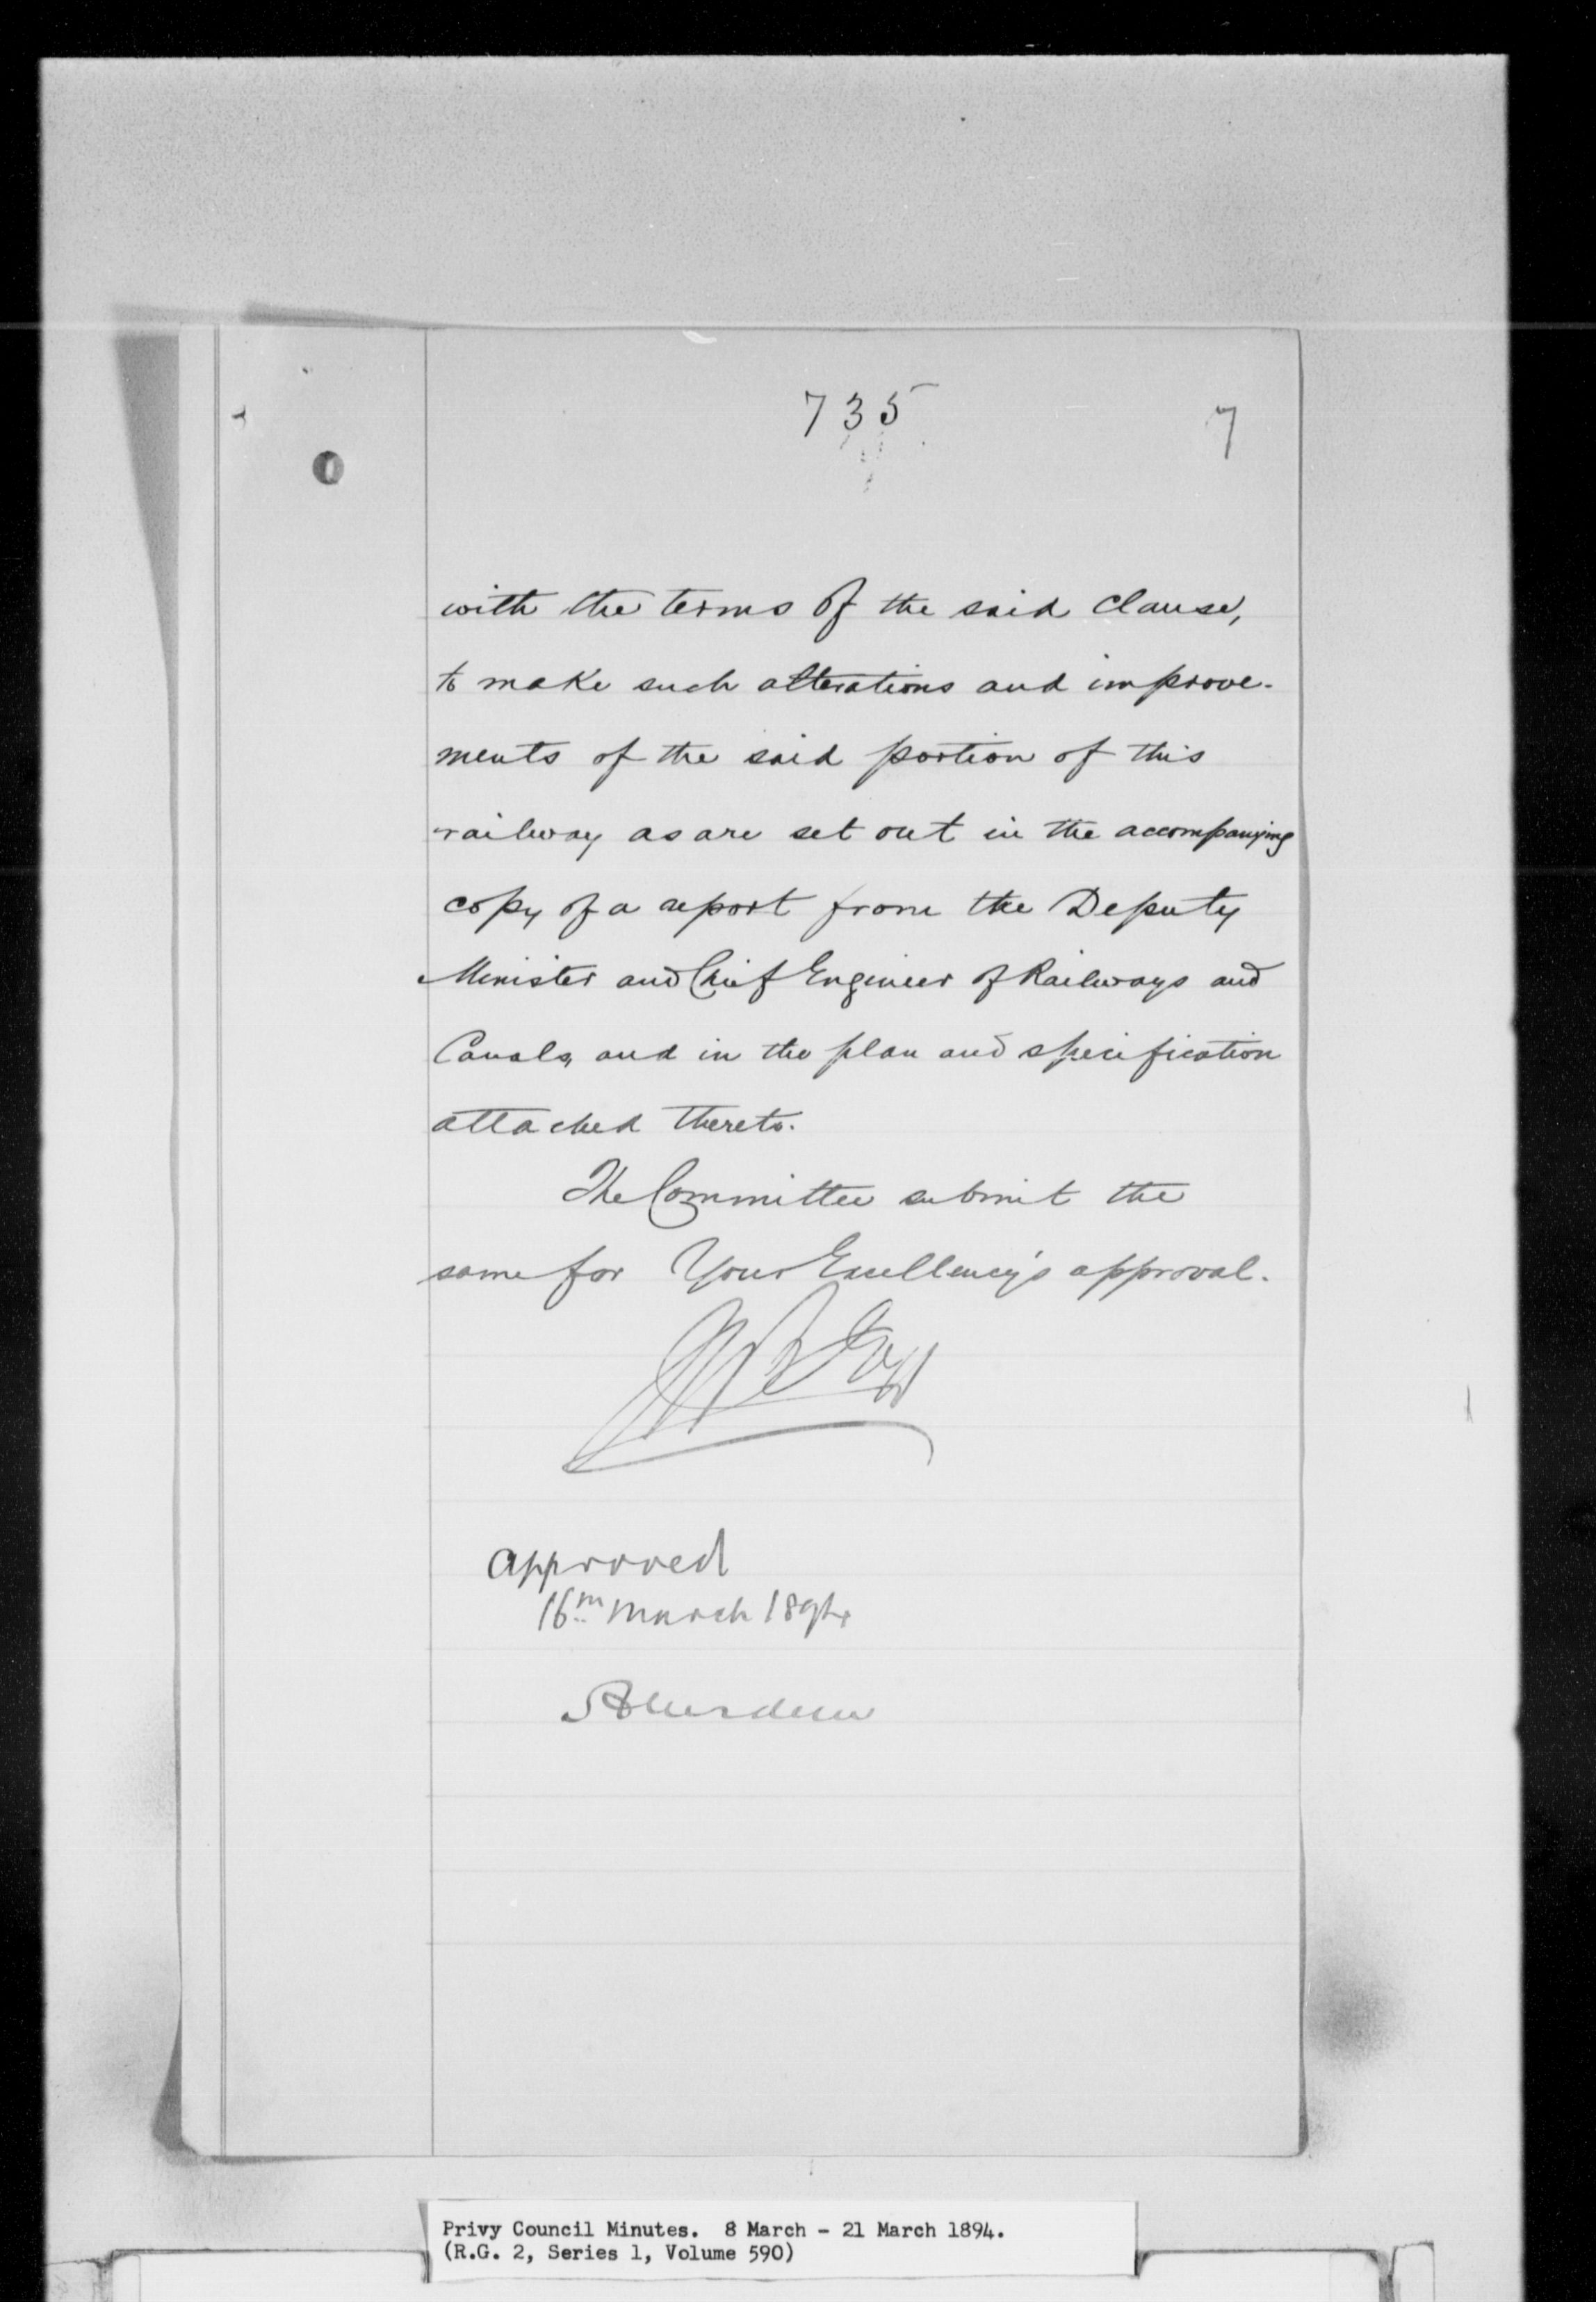 735
7
with the terms of the said Clause,
to make such alterations and improve-
ments of the said portion of this
railway as are set out in the accompanying
copy of a report from the Deputy
Minister and Chief Engineer of Railways and
Canals, and in the plan and specification
attached thereto.
The Committee submit the
same for Your Excellency's approval.
approved
16th March 1894
Aberdeen
Privy Council Minutes. 8 March - 21 March 1894.
(R.G. 2, Series 1, Volume 590)